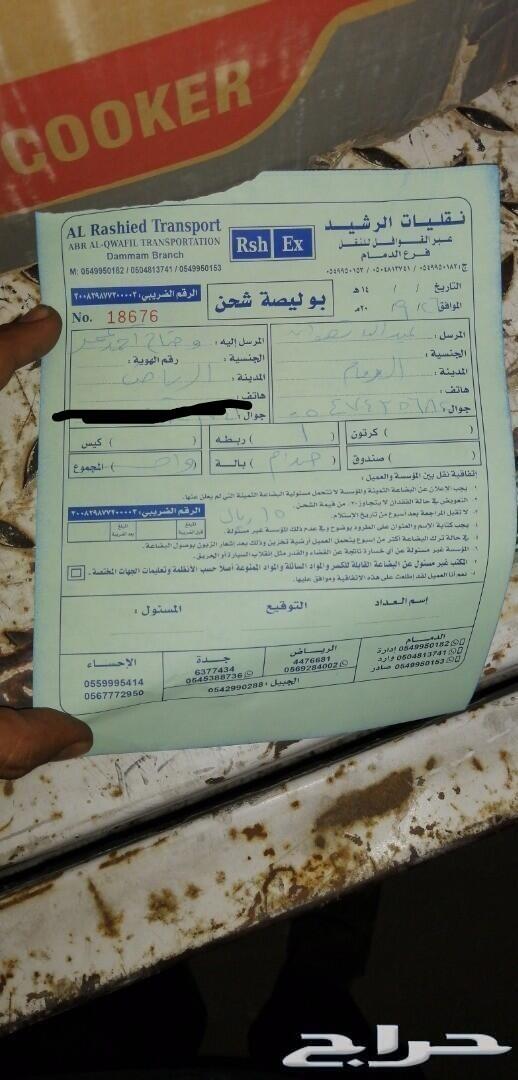 COOKER
AL Rashied Transport
ABR AL-QWAFIL TRANSPORTATION
Dammam Branch
M: 0549950182 / 0504813741 / 0549950153
Rsh Ex
نقليات الرشيد
عبر القوافل للنقل
فرع الدمام
ج: ٠٥٤٩٩٥٠١٨٢ / ٠٥٠٤٨١٣٧٤١ / ٠٥٤٩٩٥٠١٥٣
الرقم الضريبي: ٣٠٠٨٢٩٨٧٧٣٠٠٠٠٣
No. 18676
بوليصة شحن
التاريخ / / ١٤ هـ
الموافق ٢٠ م
المرسل :
الجنسية :
المدينة : الدمام
هاتف :
جوال :
المرسل إليه : وضاح احمد
رقم الهوية :
المدينة : الرياض
هاتف :
جوال :
كرتون ( )
ربطه ( ١ )
كيس ( )
صندوق ( )
بالة ( )
المجموع ( واحد )
إتفاقية نقل بين المؤسسة والعميل :
١- يجب الاعلان عن البضاعة الثمينة والمؤسسة لا تتحمل مسئولية البضاعة الثمينة التي لم يعلن عنها.
٢- التعويض في حالة الفقدان لا يتجاوز ٣٠٪ من قيمة الشحن.
٣- لا تقبل المراجعة بعد أسبوع من تاريخ الإستلام.
٤- يجب كتابة الإسم والعنوان على الطرود بوضوح وفي عدم ذلك المؤسسة غير مسئولة.
٥- في حالة ترك البضاعة أكثر من أسبوع يتحمل العميل أرضية تخزين وذلك بعد اشعار الزبون بوصول البضاعة.
٦- المؤسسة غير مسئولة عن أي خسارة ناتجة عن القضاء والقدر مثل إنقلاب السيارة أو الحريق.
٧- المكتب غير مسئول عن البضاعة القابلة للكسر والمواد السائلة والمواد الممنوعة أصلا حسب الأنظمة وتعليمات الجهات المختصة.
٨- نعم أنا العميل لقد إطلعت على هذه الاتفاقية وموافق عليها.
الرقم الضريبي: ٣٠٠٨٢٩٨٧٧٣٠٠٠٠٣
المبلغ قبل الضريبة
المبلغ بعد الضريبة
١٥ ريال
إسم العداد
التوقيع
المسئول :
الدمام
0549950182 إدارة
0504813741 وارد
0549950153 صادر
الرياض
4476681
0569284002
جدة
6377434
0545388736
الجبيل : 0542990288
الإحساء
0559995414
0567772950
حراج